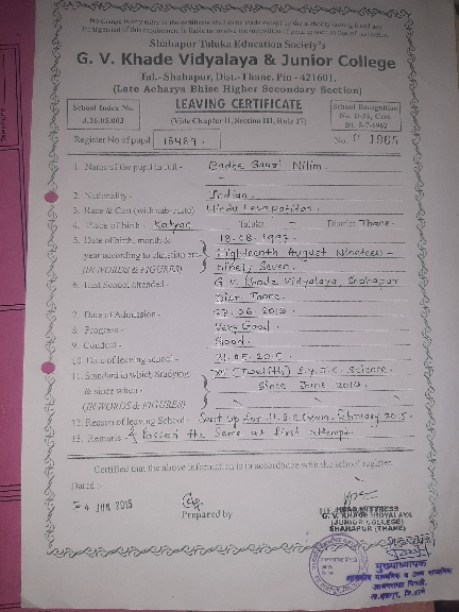 No change in any entry in the certificate shall be made except by the authority issuing it and any
infringement of this requirement is liable to involve the imposition of penalty such as that of rustication
Shahapur Taluka Education Society's
G. V. Khade Vidyalaya & Junior College
Tal.- Shahapur, Dist.- Thane. Pin - 421601.
(Late Acharya Bhise Higher Secondary Section)
School Index No.
J.16.05.003
LEAVING CERTIFICATE
(Vide Chapter II, Section III, Rule 17)
School Recognition
Register No of pupil 15489.
No. 1965
1. Name of the pupil in full - Badhe Nilim.
2. Nationality - Indian.
3. Race & Cast (with sub-caste) Hindu
4. Place of birth - Taluka - District Thane.
5. Date of birth, month & 18-08-1997.
year according to christian era Eighteenth August Nineteen -
(IN WORDS & FIGURES) Ninety Seven.
6. Last School attended - G. V. Khade Vidyalaya, Shahapur
Thane.
7. Date of Admission -
8. Progress - Very Good.
9. Conduct - Good.
10. Date of leaving school -
11. Standard in which Studying XII (Twelfth) S.Y.J.C. Science.
& since when - Since June 2014.
(IN WORDS & FIGURES)
12. Reason of leaving School - Sent up for H.S.C. Exam. February 2015.
13. Remarks - & Passed the same at first attempt.
Certified that the above information is in accordance with the school register.
Dated :-
4 JUN 2015
Prepared by
HEADMISTRESS
G. V. KHADE VIDYALAYA
(JUNIOR COLLEGE)
SHAHAPUR (THANE)
मुख्याध्यापक